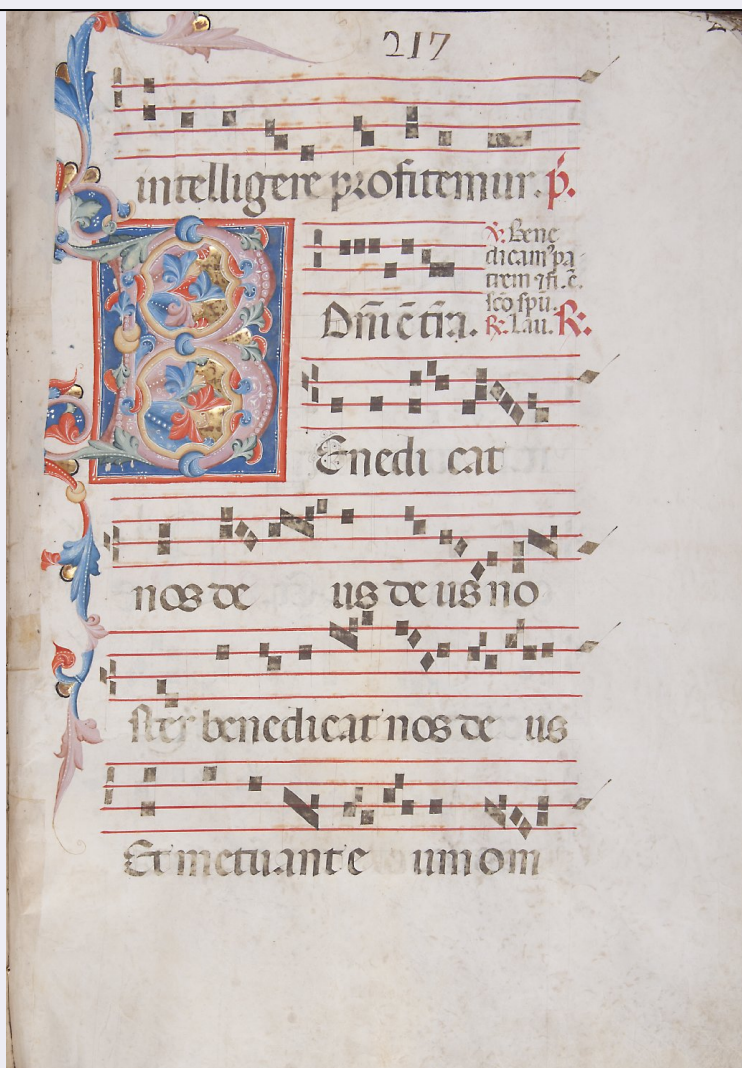 217
intelligere profitemur. p̃.
Dñi ē tr̃a.
℣. Bene
dicam' pa
trem ⁊ fi. c̄.
sc̄o spū.
R. Lau. R:
Enedi cat
nos de us de us no
ster benedicat nos de us
Et metuant e um om